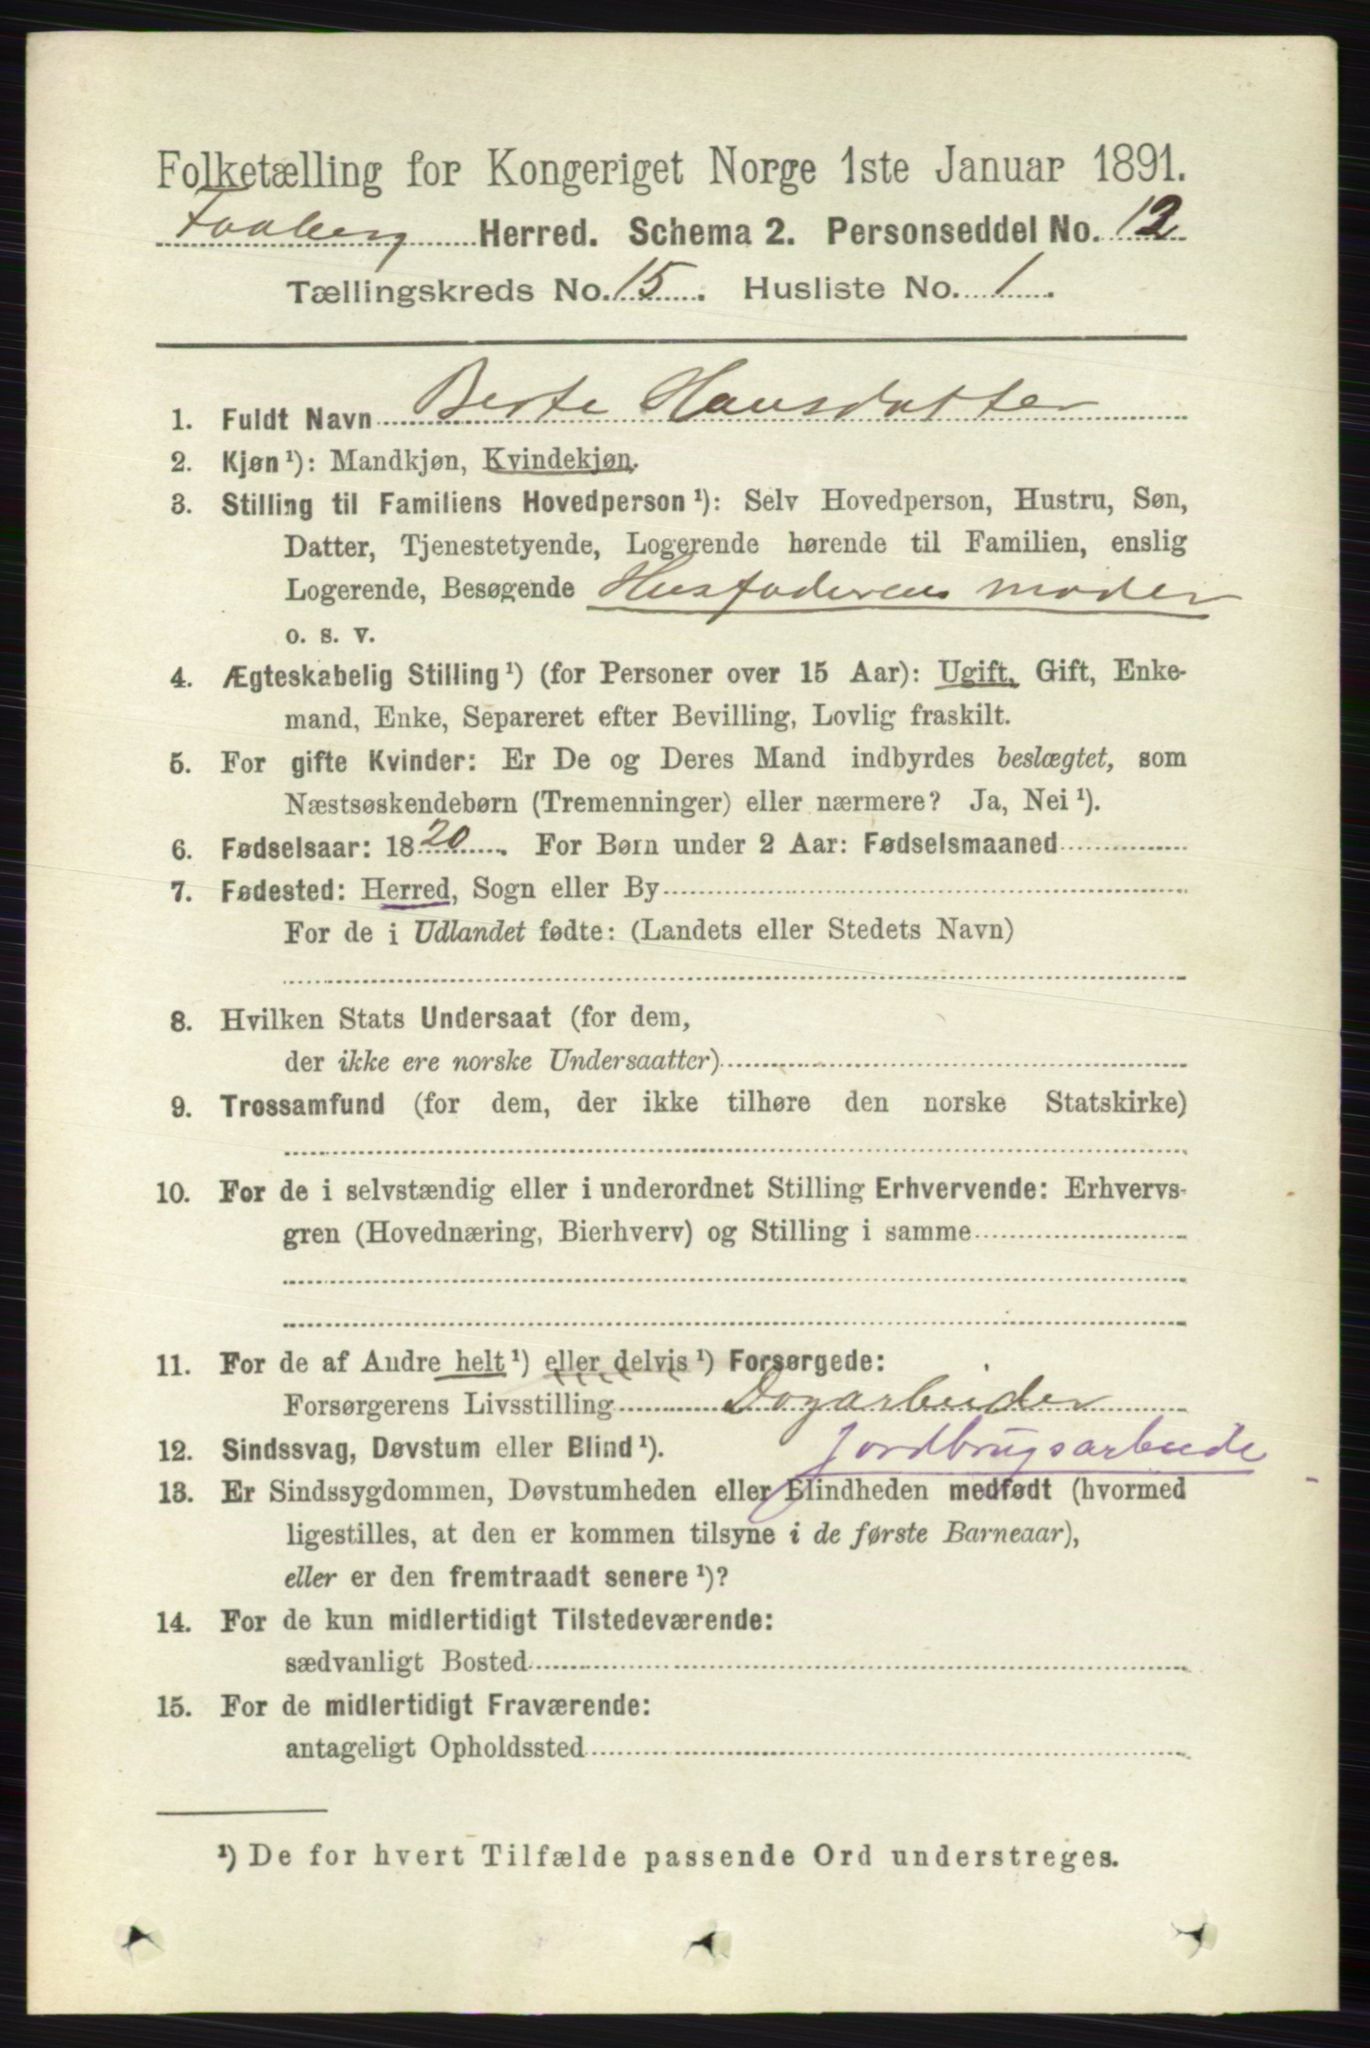 Folketælling for Kongeriget Norge 1ste Januar 1891.
Faaberg Herred. Schema 2. Personseddel No. 12
Tællingskreds No. 15. Husliste No. 1.
1. Fuldt Navn Berte Hansdatter
2. Kjøn ¹): Mandkjøn, Kvindekjøn.
3. Stilling til Familiens Hovedperson ¹): Selv Hovedperson, Hustru, Søn,
Datter, Tjenestetyende, Logerende hørende til Familien, enslig
Logerende, Besøgende Husfaderens moder
o. s. v.
4. Ægteskabelig Stilling ¹) (for Personer over 15 Aar): Ugift, Gift, Enke-
mand, Enke, Separeret efter Bevilling, Lovlig fraskilt.
5. For gifte Kvinder: Er De og Deres Mand indbyrdes beslægtet, som
Næstsøskendebørn (Tremenninger) eller nærmere? Ja, Nei ¹).
6. Fødselsaar: 1820. For Børn under 2 Aar: Fødselsmaaned
7. Fødested: Herred, Sogn eller By
For de i Udlandet fødte: (Landets eller Stedets Navn)
8. Hvilken Stats Undersaat (for dem,
der ikke ere norske Undersaatter)
9. Trossamfund (for dem, der ikke tilhøre den norske Statskirke)
10. For de i selvstændig eller i underordnet Stilling Erhvervende: Erhvervs-
gren (Hovednæring, Bierhverv) og Stilling i samme
11. For de af Andre helt ¹) eller delvis ¹) Forsørgede:
Forsørgerens Livsstilling Dagarbeider
12. Sindssvag, Døvstum eller Blind ¹). Jordbrugsarbeide
13. Er Sindssygdommen, Døvstumheden eller Blindheden medfødt (hvormed
ligestilles, at den er kommen tilsyne i de første Barneaar),
eller er den fremtraadt senere ¹)?
14. For de kun midlertidigt Tilstedeværende:
sædvanligt Bosted
15. For de midlertidigt Fraværende:
antageligt Opholdssted
¹) De for hvert Tilfælde passende Ord understreges.